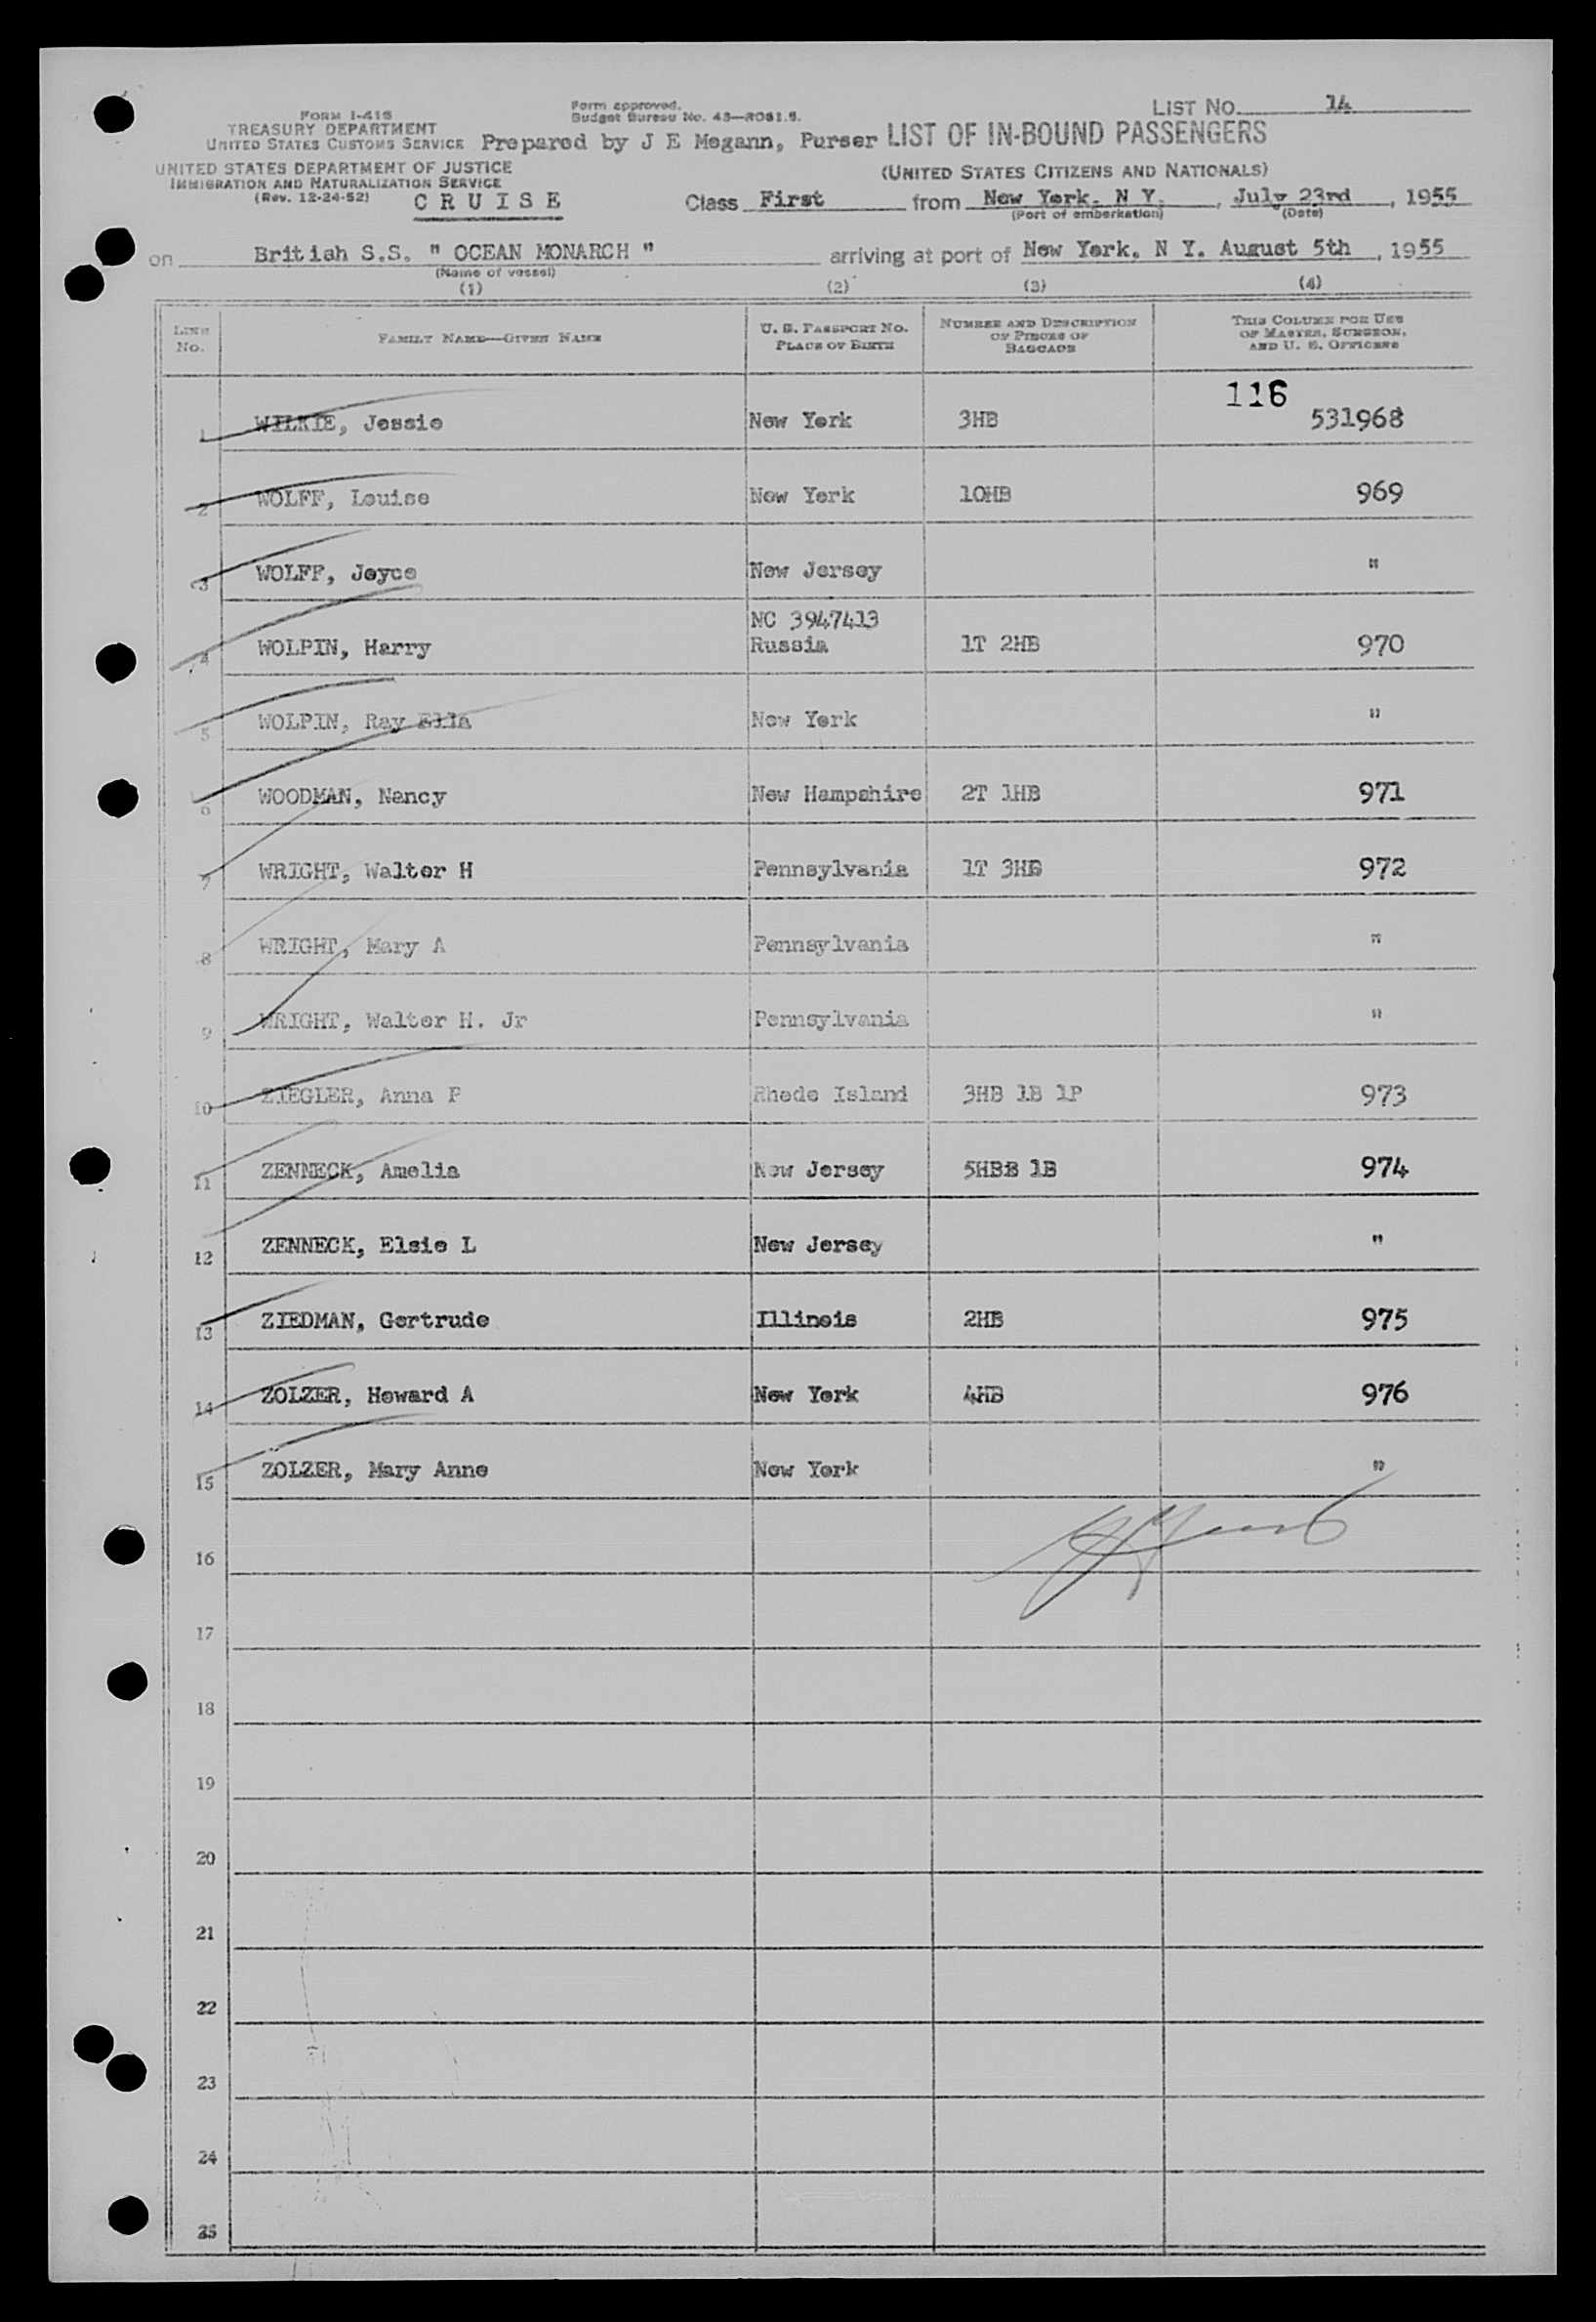 Form I-418
TREASURY DEPARTMENT
UNITED STATES CUSTOMS SERVICE
UNITED STATES DEPARTMENT OF JUSTICE
IMMIGRATION AND NATURALIZATION SERVICE
(Rev. 12-24-52)
Form approved.
Budget Bureau No. 43—R081.5.
LIST NO. 14
Prepared by J E Megann, Purser LIST OF IN-BOUND PASSENGERS
(UNITED STATES CITIZENS AND NATIONALS)
CRUISE Class First from New York. N Y. , July 23rd , 1955
(Port of embarkation) (Date)
on British S.S. " OCEAN MONARCH " arriving at port of New York. N Y. August 5th , 1955
(Name of vessel)
(1) (2) (3) (4)
LINE No. FAMILY NAME—GIVEN NAME U. S. PASSPORT NO. PLACE OF BIRTH NUMBER AND DESCRIPTION OF PIECES OF BAGGAGE THIS COLUMN FOR USE OF MASTER, SURGEON, AND U. S. OFFICERS
116
1 WILKIE, Jessie New York 3HB 531968
2 WOLFF, Louise New York 10HB 969
3 WOLFF, Joyce New Jersey "
NC 3947413
4 WOLPIN, Harry Russia 1T 2HB 970
5 WOLPIN, Ray Ella New York "
6 WOODMAN, Nancy New Hampshire 2T 1HB 971
7 WRIGHT, Walter H Pennsylvania 1T 3HB 972
8 WRIGHT, Mary A Pennsylvania "
9 WRIGHT, Walter H. Jr Pennsylvania "
10 ZIEGLER, Anna F Rhode Island 3HB 1B 1P 973
11 ZENNECK, Amelia New Jersey 5HBB 1B 974
12 ZENNECK, Elsie L New Jersey "
13 ZIEDMAN, Gertrude Illinois 2HB 975
14 ZOLZER, Howard A New York 4HB 976
15 ZOLZER, Mary Anne New York "
16
17
18
19
20
21
22
23
24
25